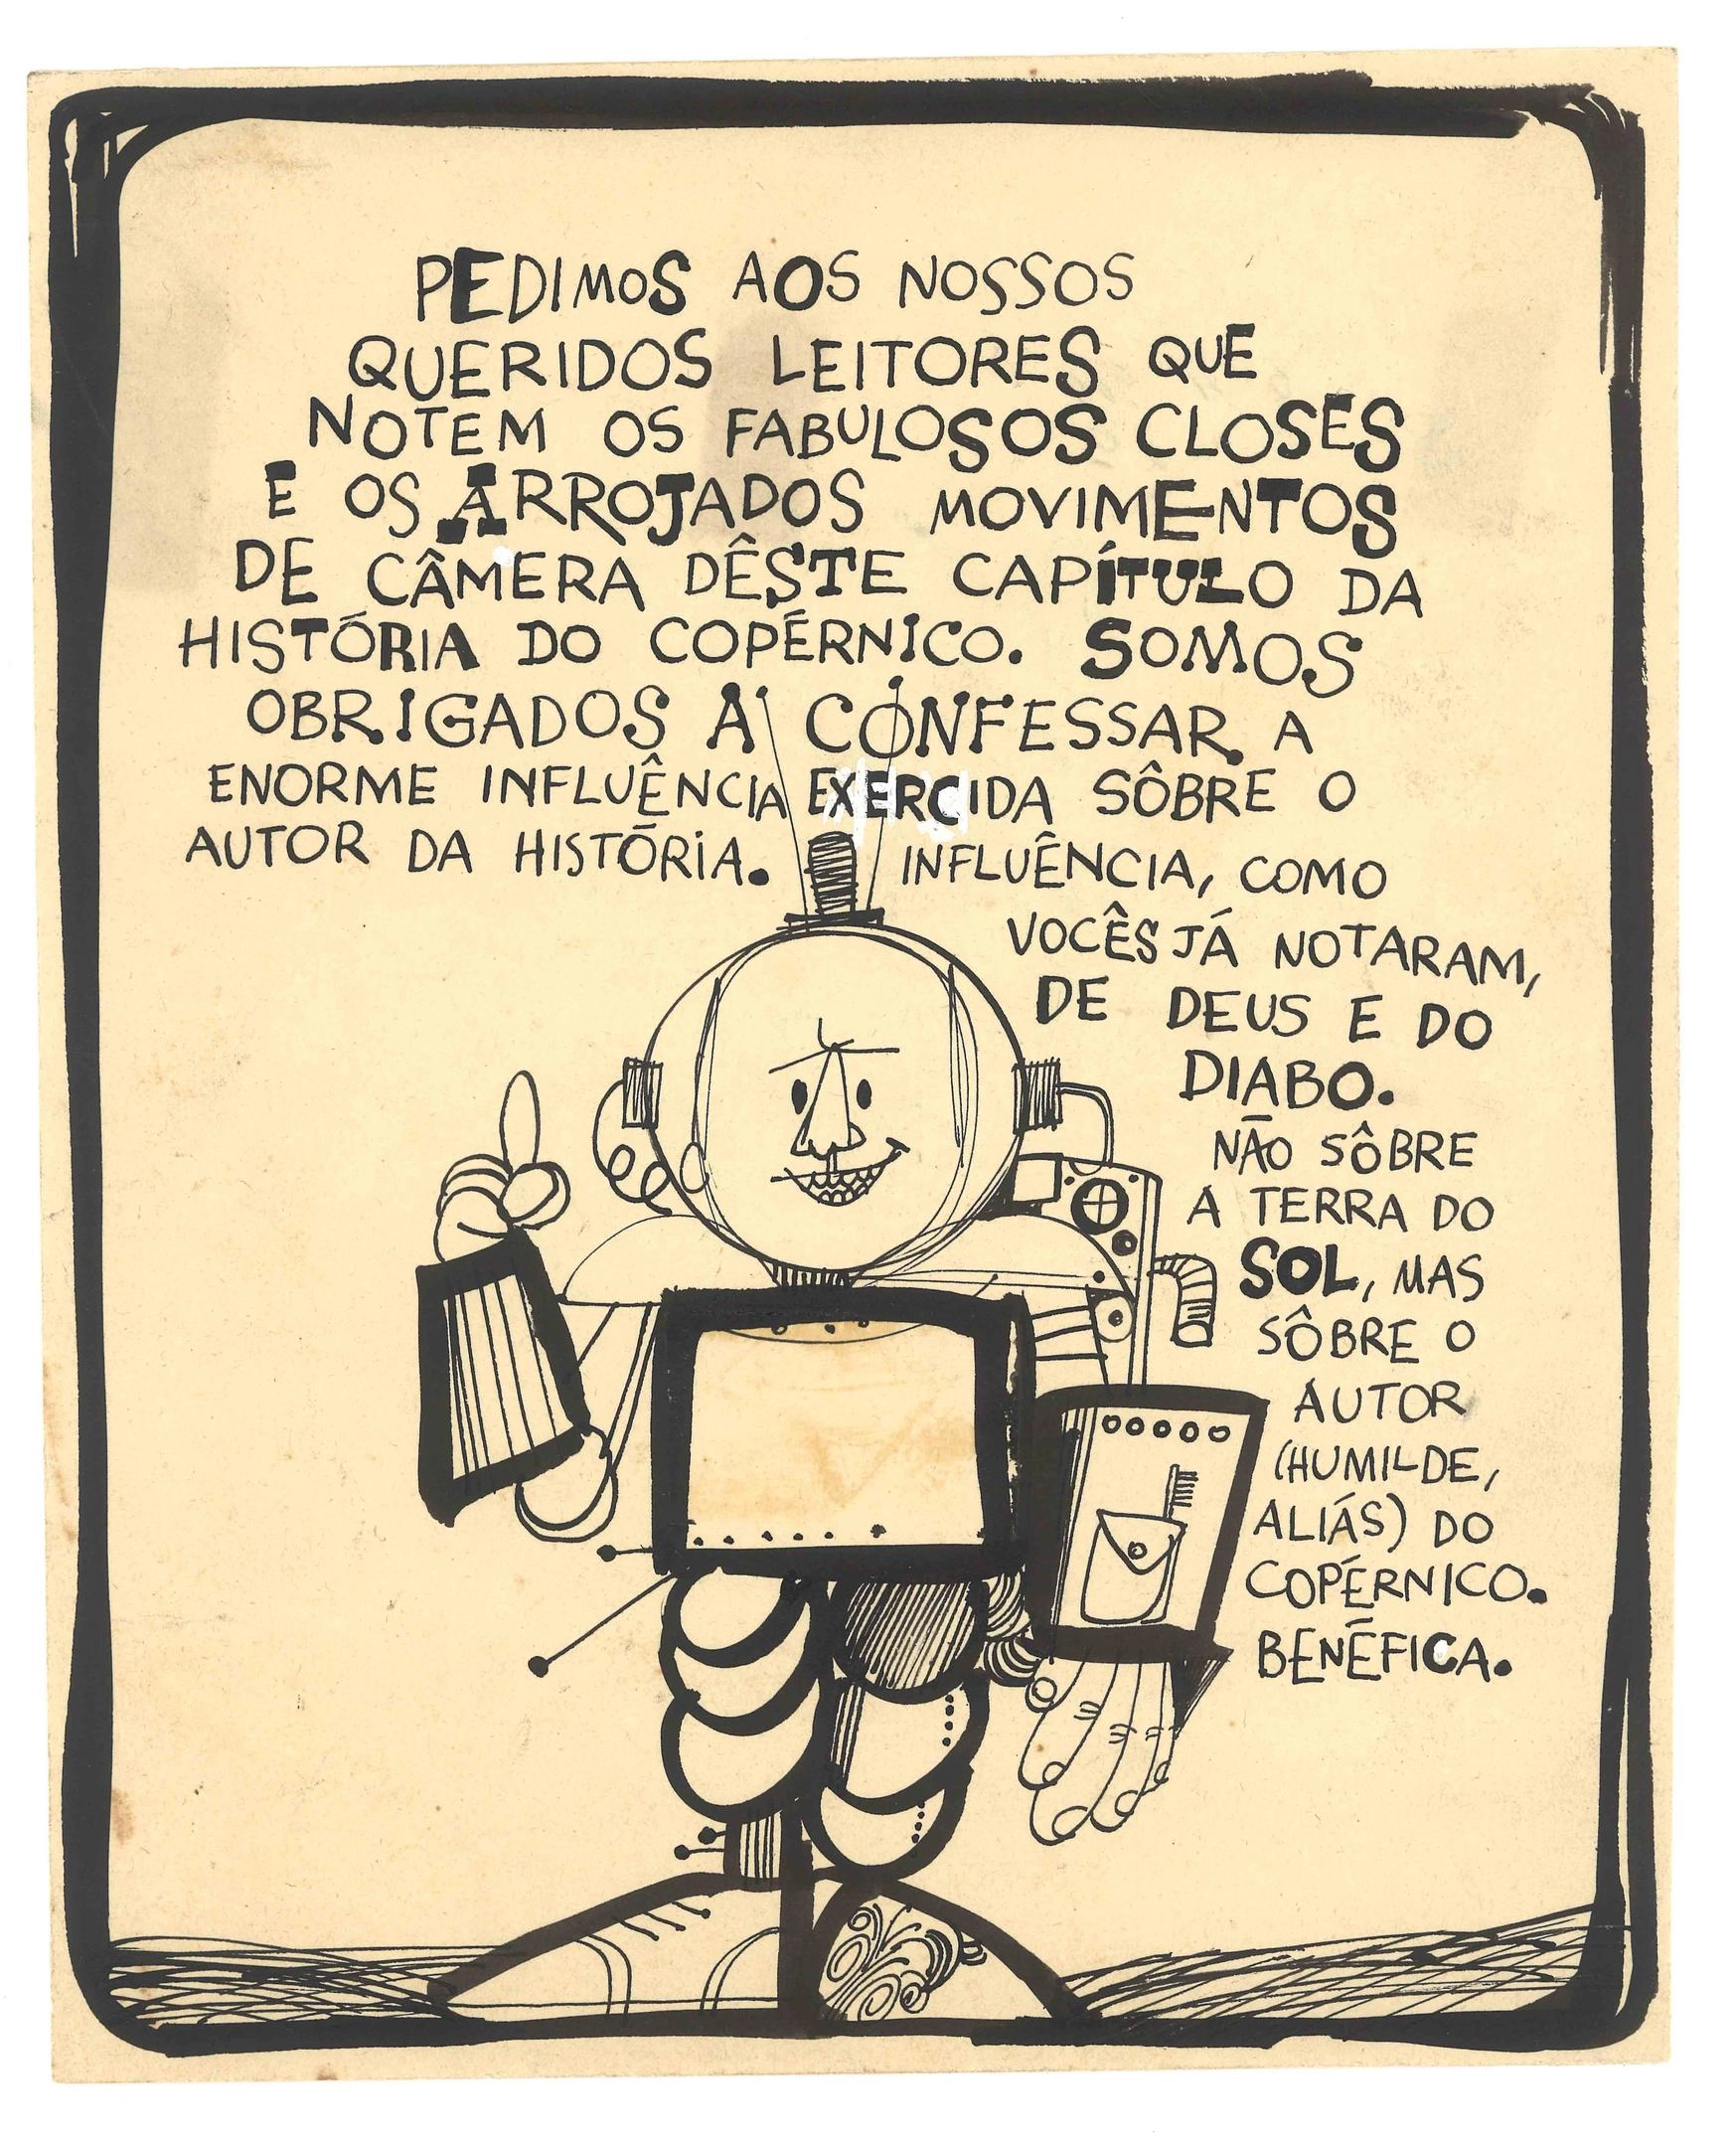 PEDIMOS AOS NOSSOS
QUERIDOS LEITORES QUE
NOTEM OS FABULOSOS CLOSES
E OS ARROJADOS MOVIMENTOS
DE CÂMERA DÊSTE CAPÍTULO DA
HISTÓRIA DO COPÉRNICO. SOMOS
OBRIGADOS A CONFESSAR A
ENORME INFLUÊNCIA EXERCIDA SÔBRE O
AUTOR DA HISTÓRIA. INFLUÊNCIA, COMO
VOCÊS JÁ NOTARAM,
DE DEUS E DO
DIABO.
NÃO SÔBRE
A TERRA DO
SOL, MAS
SÔBRE O
AUTOR
(HUMILDE,
ALIÁS) DO
COPÉRNICO.
BENÉFICA.